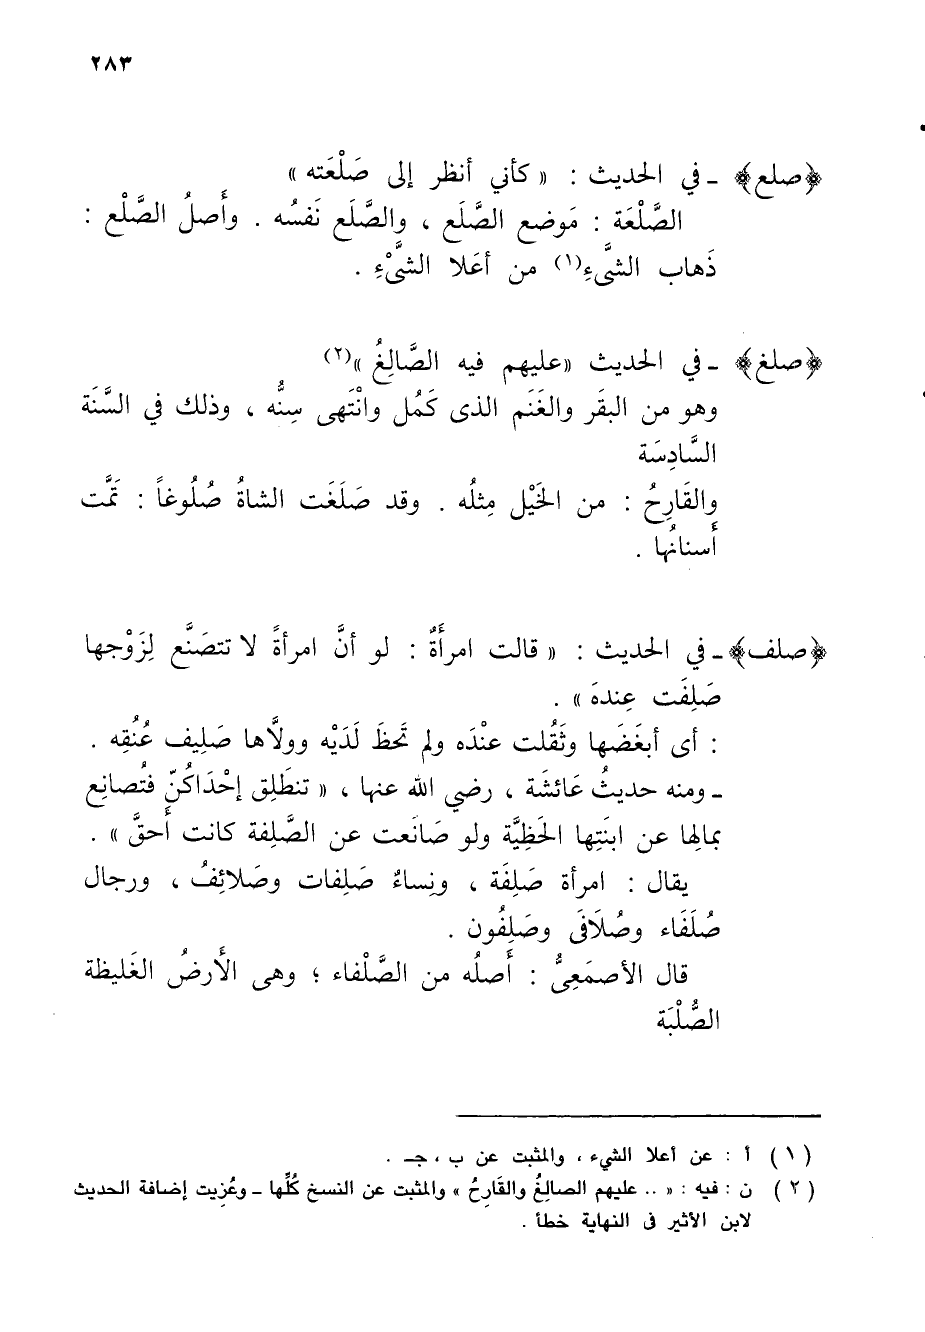 ٢٨٣
﴿صلع﴾ ـ في الحديث : « كأني أنظر إلى صَلْعَته »
الصَّلْعَة : مَوضع الصَّلَع ، والصَّلَع نَفسُه . وأَصلُ الصَّلْع :
ذَهاب الشىَّء(١) من أعَلا الشىَّْءِ .
﴿صلغ﴾ ـ في الحديث «عليهم فيه الصَّالِغُ »(٢)
وهو من البقَر والغَنَم الذى كَمُل وانْتَهى سِنُّه ، وذلك في السَّنَة
السَّادِسَة
والقَارِحُ : من الخَيْل مِثلُه . وقد صَلَغَت الشاةُ صُلُوغاً : تَمَّت
أَسنانُها .
﴿صلف﴾ ـ في الحديث : « قالت امرأَةٌ : لو أنَّ امرأةً لا تتصَنَّع لِزَوْجها
صَلِفَت عِندهَ » .
: أى أبغَضَها وثَقُلت عنْدَه ولم تَحظَ لَدَيْه وولَّاها صَلِيف عُنُقِه .
ـ ومنه حديثُ عَائشَة ، رضي الله عنها ، « تنطَلِق إحْدَاكُنّ فتُصانِع
بمالِها عن ابنَتِها الحَظِيَّة ولو صَانَعت عن الصَّلِفة كانت أَحقَّ » .
يقال : امرأة صَلِفَة ، ونِساءٌ صَلِفات وصَلائِفُ ، ورجال
صُلَفَاء وصُلَافَى وصَلِفُون .
قال الأصمَعِىُّ : أَصلُه من الصَّلْفاء ؛ وهى الأَرضُ الغَليظة
الصُّلْبَة
( ١ ) أ : عن أعلا الشيء ، والمثبت عن ب ، جـ .
( ٢ ) ن : فيه : « .. عليهم الصالِغُ والقَارِحُ » والمثبت عن النسخ كُلِّها ـ وعُزِيت إضافة الحديث
لابن الأثير فى النهاية خطأ .